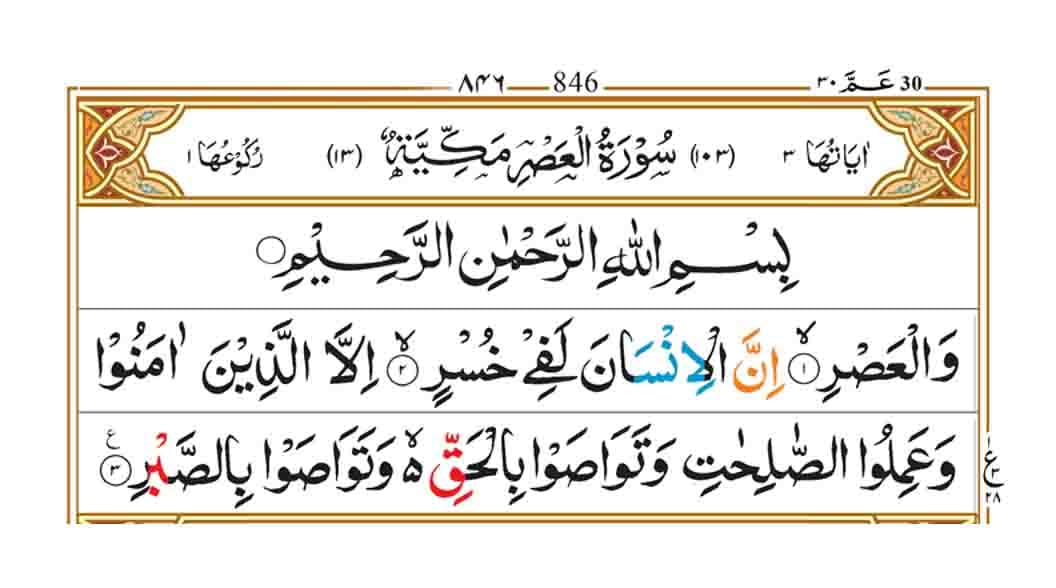 30 عَمَّ ٣٠ 846 ٨٤٦
اٰيَاتُهَا ٣ (١٠٣) سُوْرَةُ الْعَصْرِ مَكِّيَّةٌ (١٣) رُكُوْعُهَا ١
بِسْمِ اللّٰهِ الرَّحْمٰنِ الرَّحِيْمِ ○
وَالْعَصْرِ ۙ﴿١﴾ اِنَّ الْاِنْسَانَ لَفِيْ خُسْرٍ ۙ﴿٢﴾ اِلَّا الَّذِيْنَ اٰمَنُوْا
وَعَمِلُوا الصّٰلِحٰتِ وَتَوَاصَوْا بِالْحَقِّ ۙ۬ وَتَوَاصَوْا بِالصَّبْرِ ﴿٣﴾ ع
ع ٣ ٢٨